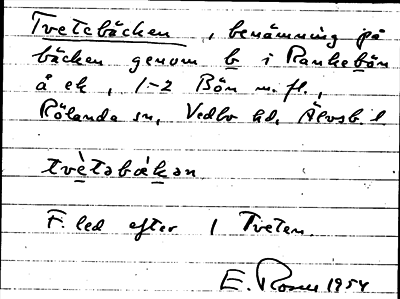 Tvetebäcken, benämning på
bäcken genom b i Rankebön
å ek, 1-2 Bön m. fl.,
Rölanda sn, Vedbo hd, Älvsb. l
tvètəbækən
F. led efter 1 Tveten.
E. Rosen 1954